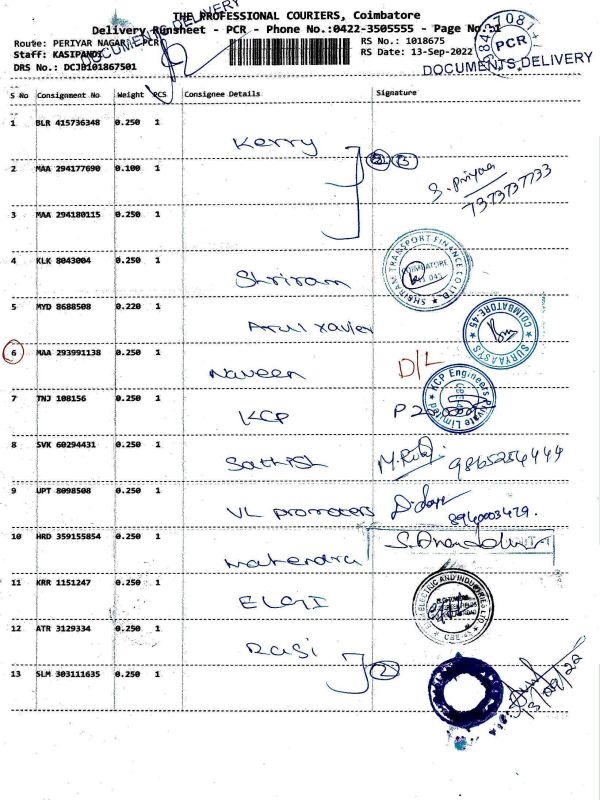 THE PROFESSIONAL COURIERS, Coimbatore
Delivery Runsheet - PCR - Phone No.:0422-3505555 - Page No.:1
Route: PERIYAR NAGAR, PCR
Staff: KASIPANDI
DRS No.: DCJB101867501
RS No.: 1018675
RS Date: 13-Sep-2022
DOCUMENTS DELIVERY
PCR
DOCUMENTS DELIVERY
S No Consignment No Weight PCS Consignee Details Signature
1 BLR 415736348 0.250 1 Kerry
2 MAA 294177690 0.100 1 S. Priyaa 7373737733
3 MAA 294180115 0.250 1
4 KLK 8043004 0.250 1 Shriram SHRIRAM TRANSPORT FINANCE CO LTD. COIMBATORE
5 MYD 8688508 0.220 1 Arul xavier SURYAASYS COIMBATORE-45
6 MAA 293991138 0.250 1 Naveen D/L
7 TNJ 108156 0.250 1 KCP KCP Engineers Private Limited
8 SVK 60294431 0.250 1 Sathish
9 UPT 8098508 0.250 1 VL promoters
10 HRD 359155854 0.250 1 Mahendra
11 KRR 1151247 0.250 1 ELGI
12 ATR 3129334 0.250 1 Rasi 2
13 SLM 303111635 0.250 1